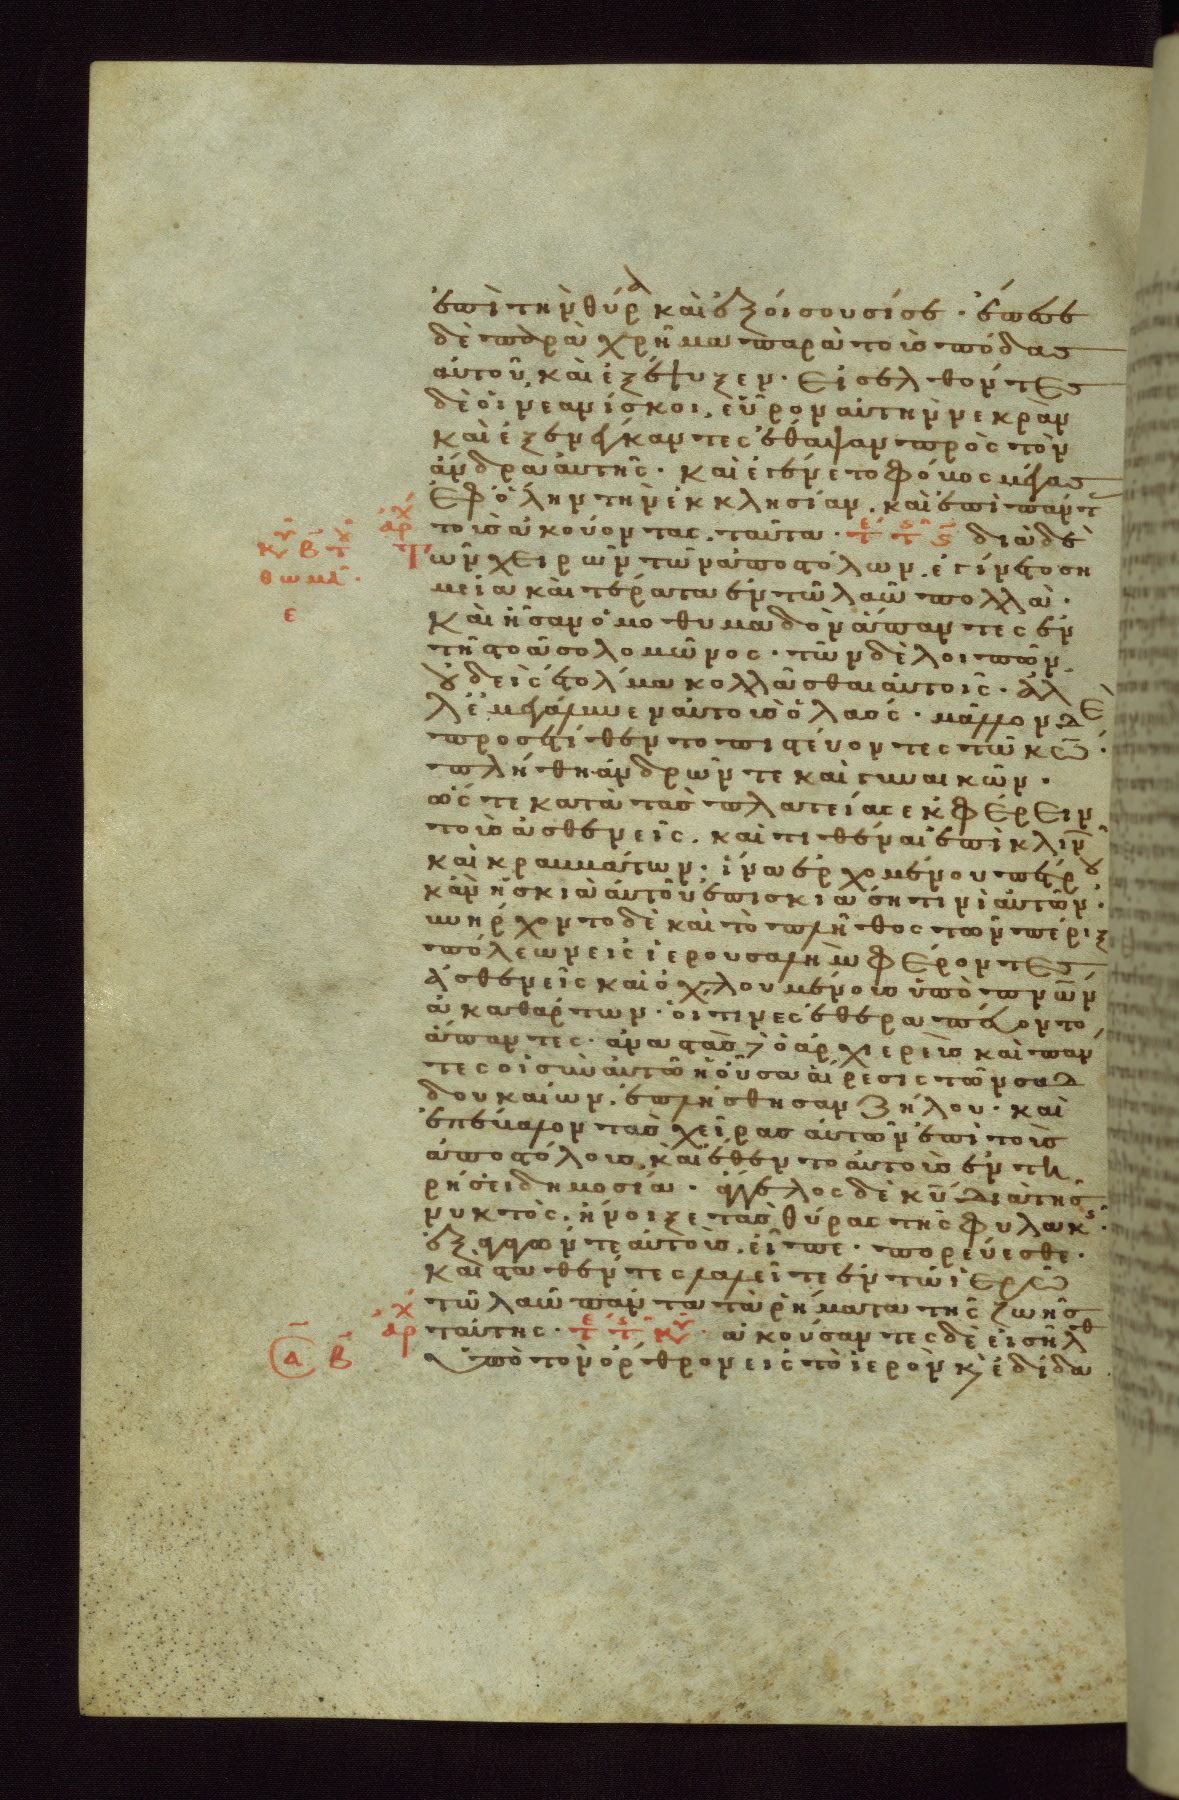 ἐπὶ τὴν θύρ(α) καὶ ἐξοίσουσί σε · ἔπεσε
δὲ παρὰ χρῆμα παρὰ τοὺς πόδας
αὐτοῦ, καὶ ἐξέψυξεν · Εἰσελθόντες
δὲ οἱ νεανίσκοι, εὗρον αὐτὴν νεκρὰν
καὶ ἐξενέγκαντες ἔθαψαν πρὸς τὸν
ἄνδρα αὐτῆς · καὶ ἐγένετο φόβος μέγας
ἐφ ὅλην τὴν ἐκκλησίαν, καὶ ἐπὶ πάντ
ἀρχ τοὺς ἀκούοντας, ταῦτα · τε τς διὰ δὲ
κυ β τ
Τῶν χειρῶν τῶν ἀποστόλων, ἐγίνετο ση
θωμᾶ ·
μεῖα καὶ τέρατα ἐν τῷ λαῷ πολλὰ ·
ε
καὶ ἦσαν ὁμοθυμαδὸν ἅπαντες ἐν
τῇ στοᾷ σολομῶνος · τῶν δὲ λοιπῶν
οὐδεὶς ἐτόλμα κολλᾶσθαι αὐτοῖς · ἀλ
λ ἐμεγάλυνεν αὐτοὺς ὁ λαός · μᾶλλον δὲ
προσετίθεντο πιστεύοντες τῷ κω ·
πλήθη ἀνδρῶν τε καὶ γυναικῶν ·
ὥστε κατὰ τὰς πλατείας ἐκφέρειν
τοὺς ἀσθενεῖς, καὶ τιθέναι ἐπὶ κλιν
καὶ κραββάτων · ἵνα ἐρχομένου πέτρου
κἂν ἡ σκιὰ αὐτοῦ ἐπισκιάσῃ τινὶ αὐτῶν ·
συνήρχοντο δὲ καὶ τὸ πλῆθος τῶν πέριξ
πόλεων εἰς ἱερουσαλὴμ φέροντες
ἀσθενεῖς καὶ ὀχλουμένους ὑπὸ πνῶν
ἀκαθάρτων · οἵτινες ἐθεραπεύοντο
ἅπαντες · ἀναστὰς δὲ ὁ ἀρχιερεὺς καὶ πάν
τες οἱ σὺν αὐτῷ ἡ οὖσα αἵρεσις τῶν σαδ
δουκαίων, ἐπλήσθησαν ζήλου · καὶ
ἐπέβαλον τὰς χεῖρας αὐτῶν ἐπὶ τοὺς
ἀποστόλους, καὶ ἔθεντο αὐτοὺς ἐν τη
ρήσει δημοσίᾳ · ἄγγελος δὲ κυ διὰ τῆς
νυκτὸς, ἤνοιξε τὰς θύρας τῆς φυλακῆς ·
ἐξαγαγών τε αὐτοὺς, εἶπε · πορεύεσθε ·
καὶ σταθέντες λαλεῖτε ἐν τῷ ἱερῷ
τῷ λαῷ πάντα τὰ ῥήματα τῆς ζωῆς
α β ἀρχ ταύτης · τε τ κυ · ἀκούσαντες δὲ εἰσῆλθ
ὑπὸ τὸν ὄρθρον εἰς τὸ ἱερὸν κ ἐδίδα